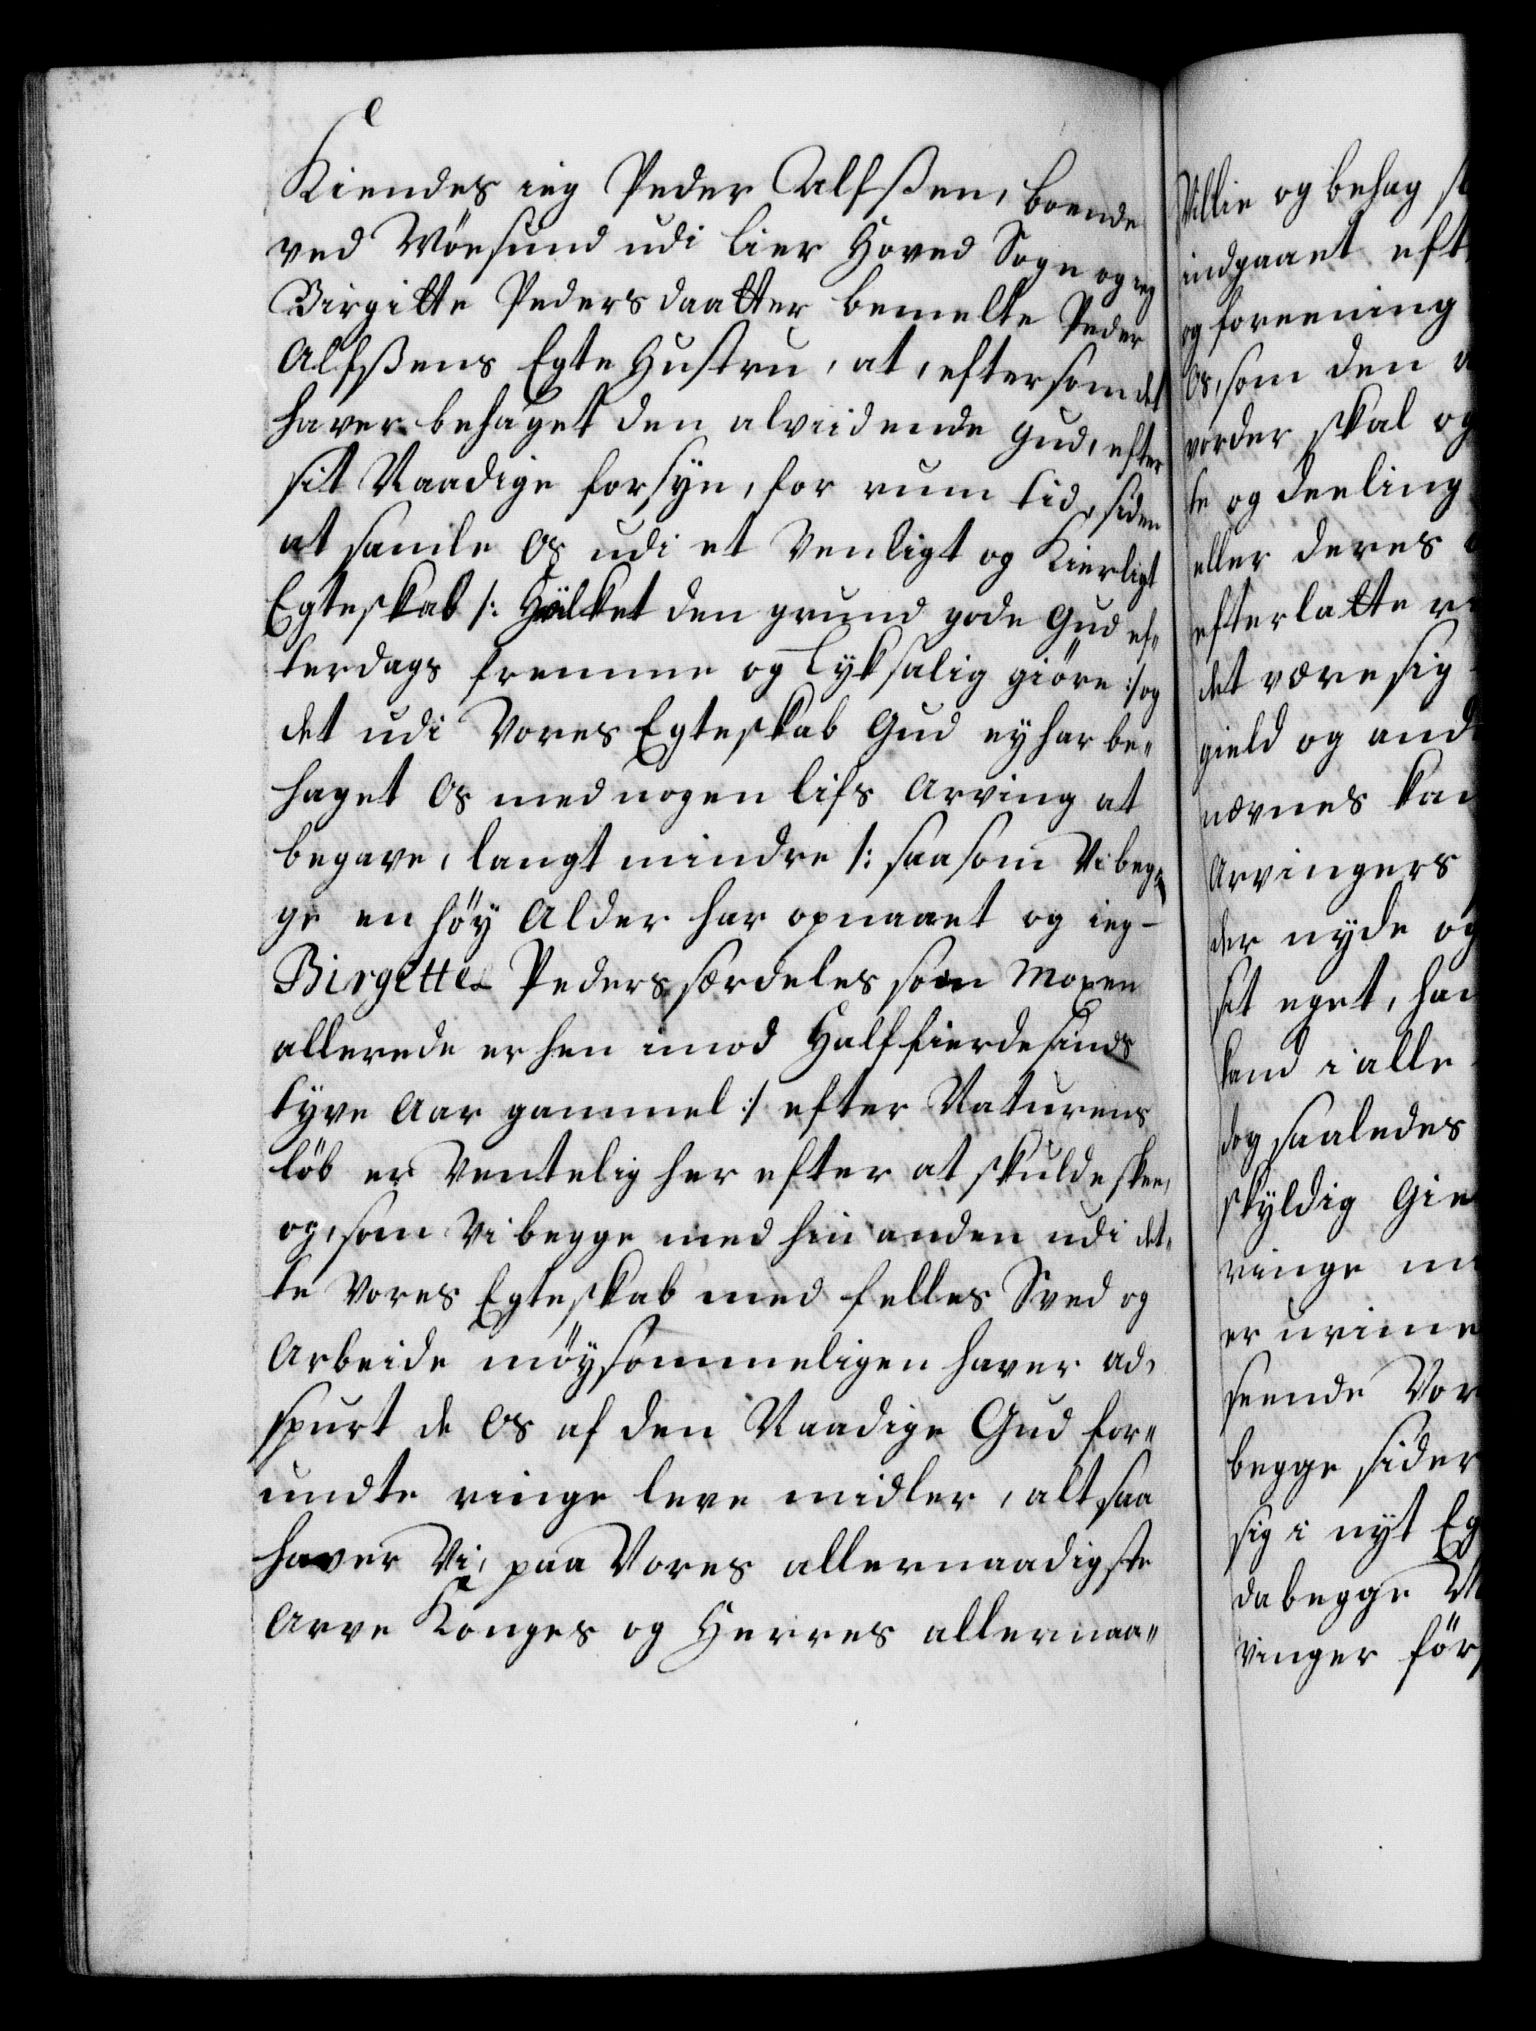 Kiendes ieg Peder Alfßen, boende
ved Wöesund udi Lier Hoved Sogn og ieg
Birgitte Pedersdaatter bemelte Peder
Alfßens Egte Hustru, at, eftersom det
haver behaget den alviidende Gud, efter
sit Naadige forsyn, for rum tid siden
at samle Os udi et Venligt og Kierligt
Egteskab /: Hvilket den grund gode Gud ef„
terdags fremme og Lyksalig giöre :/ og
det udi Vores Egteskab Gud ey har be„
haget Os med nogen lifs Arving at
begave, langt mindre /: saasom Vi beg„
ge en höy Alder har opnaaet og ieg
Birgitte Peders særdeles som
allerede er hen imod Half fierdesinds
tyve Aar gammel :/ efter Naturens
löb er Ventelig her efter at skulde skee,
og, som Vi begge med hin anden udi det„
te Vores Egteskab med felles Sved og
Arbeide möysommeligen haver ad„
spurt de Os af den Naadige Gud for„
undte ringe leve midler, alt saa
haver Vi, paa Vores allernaadigste
Arve Konges og Herres allernaa„
Villie og behag
indgaaet eft
og foreening
Os, som den
vorder skal og
te og deeling
eller deres
efterlatte
det være sig
gield og and
nævnes kan
Arvingers
der nyde og
sit eget, han
kand i alle
dog saaledes
skyldig Gie
ringe
er
seende Vor
begge sider
sig i nyt Eg
da begge
vinger för